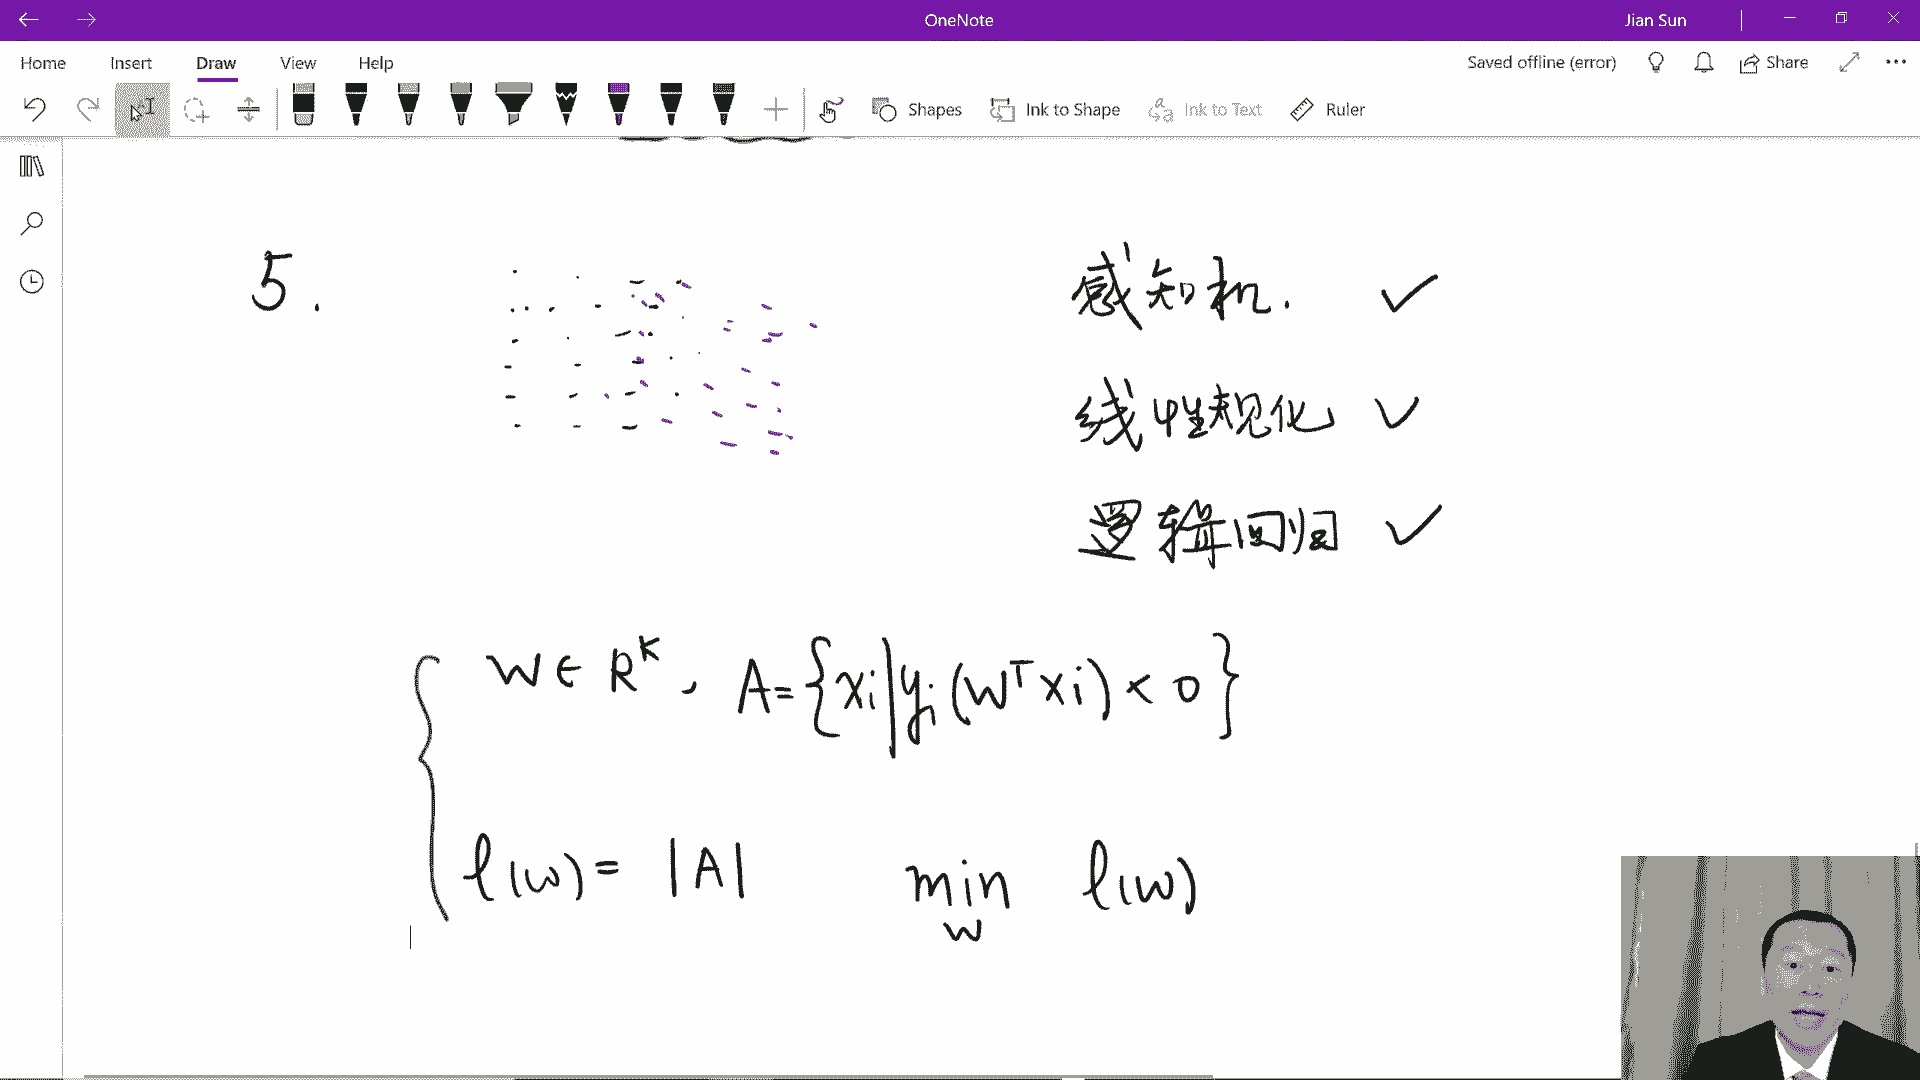 OneNote
Jian Sun
Home Insert Draw View Help
Saved offline (error)
Share
Shapes
Ink to Shape
Ink to Text
Ruler
5.
感知机. ✓
线性规化 ✓
逻辑回归 ✓
w ∈ R^K, A = {xi | yi (w^T xi) < 0}
l(w) = |A| min l(w)
w